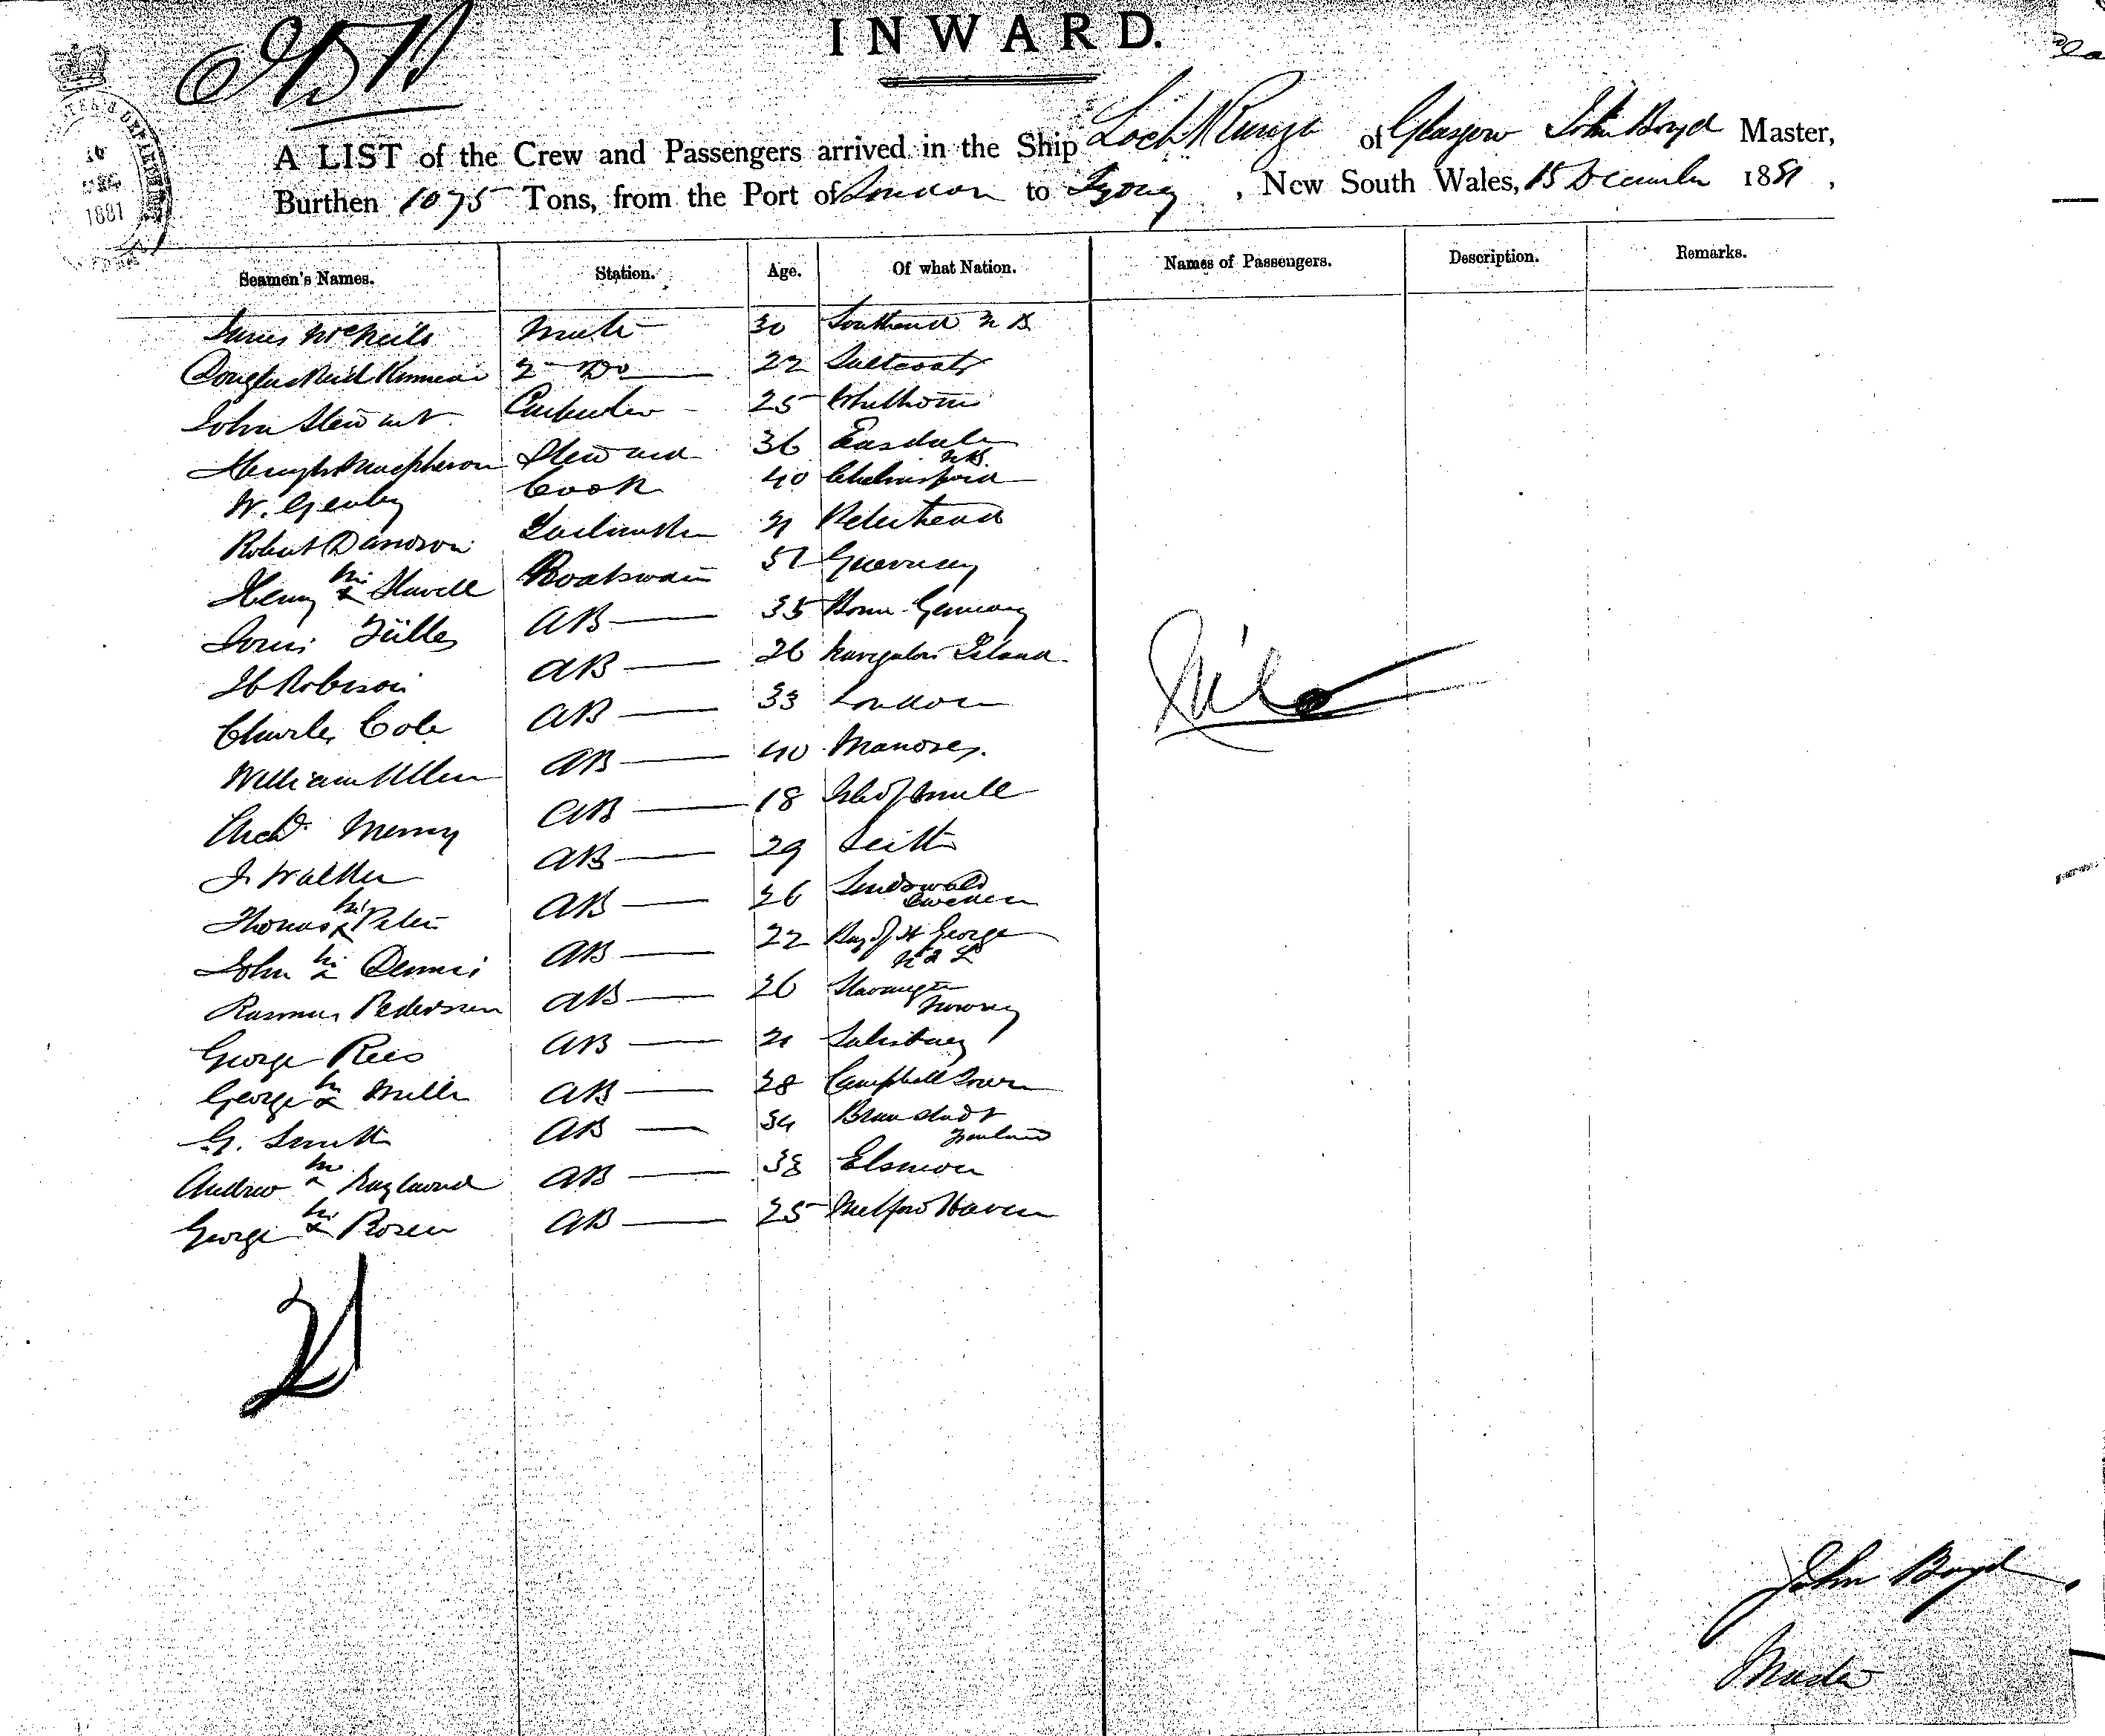 INWARD.
A LIST of the Crew and Passengers arrived in the Ship Loch Ranza of Glasgow John Boyd Master,
Burthen 1075 Tons, from the Port of London to Sydney, New South Wales, 15 December 1881,
16
DEC
1881
Seamen's Names. Station. Age. Of what Nation. Names of Passengers. Description. Remarks.
James McNeile Mate 30 Southend N B
Douglas Reid 2 Do 22 Saltcoats
John Stewart Carpenter 25 Whithorn
Macpherson Steward 36 Easdale N.B.
W. Cook 40 Chelmsford
Robert Davidson Sailmaker 21 Peterhead
Henry his x Boatswain 51 Guernsey
Louis Tülles AB 35 Bonn Germany
Robinson AB 26 Navigator Island
Charles Cole AB 33 London
William Allen AB 40
Archd. AB 18 Isle of Mull
J. Walker AB 29 Leith
Thomas his x Peter AB 26 Sweden
John his x Dennis AB 22 Bay of St George
Rasmus Pedersen AB 26 Stavanger Norway
George Rees AB 21 Salisbury
George his x Miller AB 28 Campbell Town
G. Smith AB 34
Andrew his x AB 38 Elsinore
George his x Rosen AB 25 Milford Haven
Nil
21
John Boyd
Master